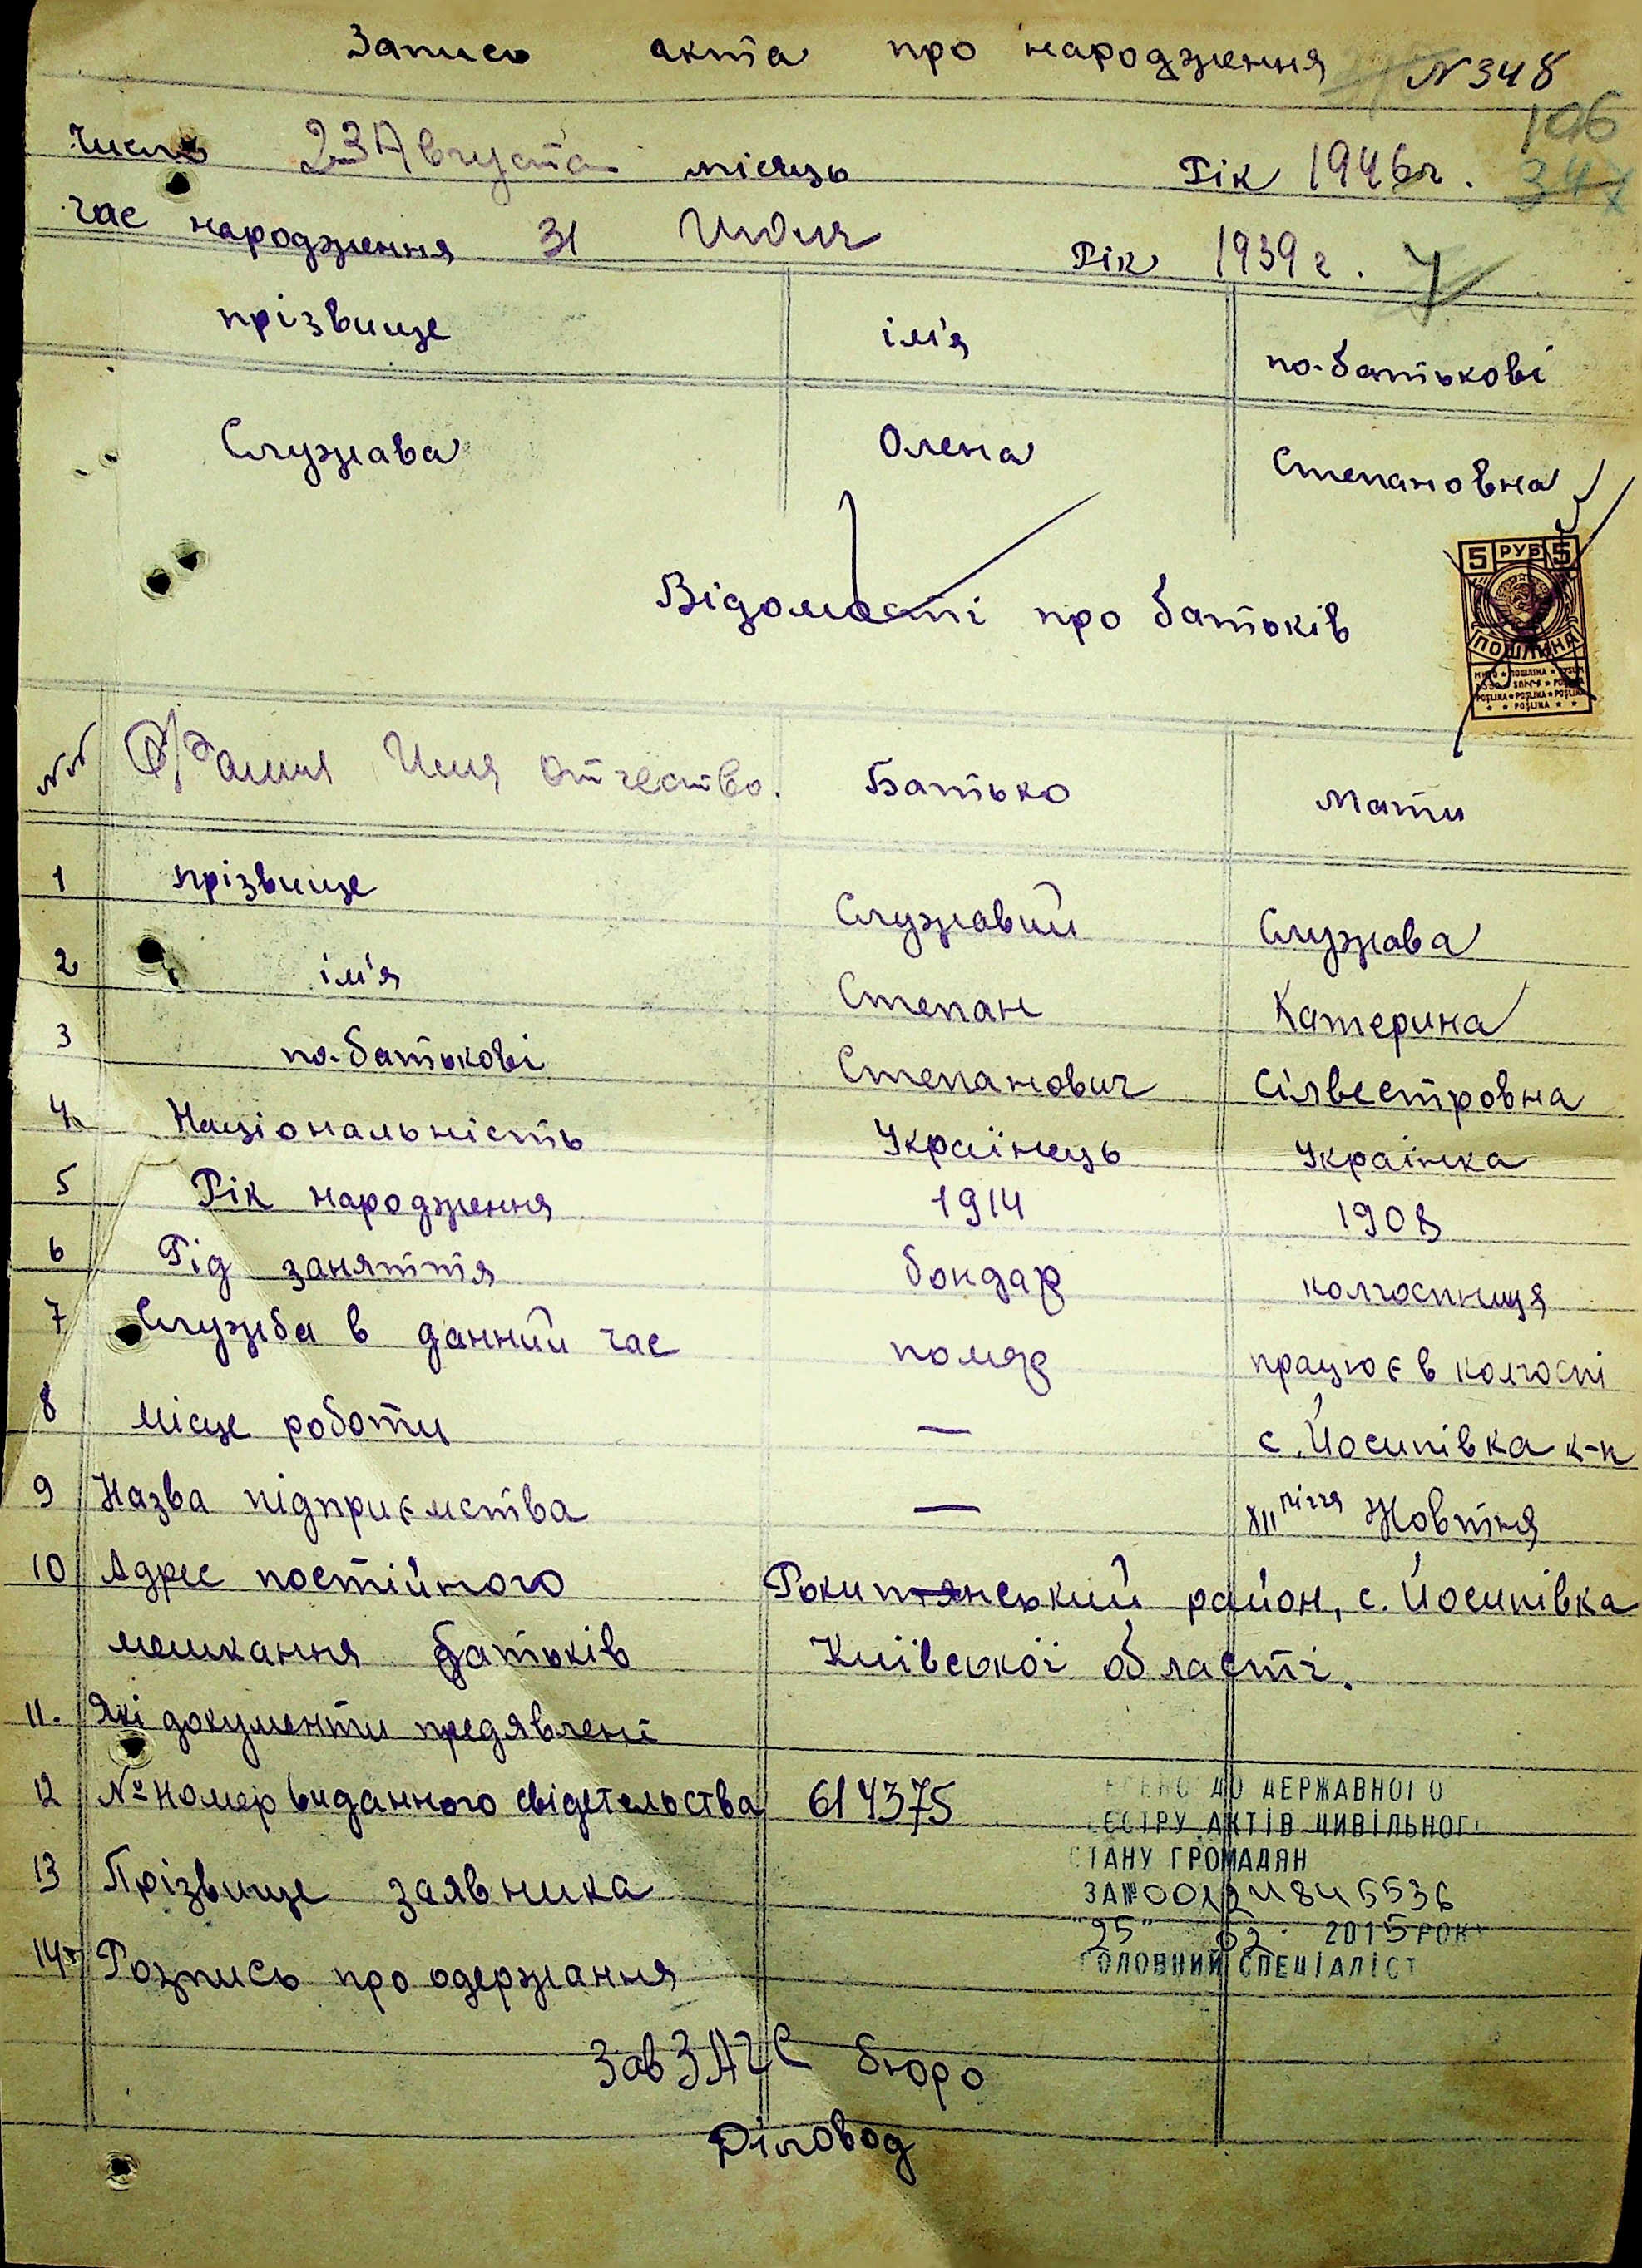 Запись акта про народження N 348
106
347
число 23 Августа місяць Рік 1946 г.
час народження 31 Июля Рік 1939 г.
прізвище ім'я по-батькові
Служава Олена Степановна
Відомості про батьків
5 РУБ 5
ПОШЛИНА
NN Фамилия Имя Отчество. Батько Мати
1 прізвище Служавий Служава
2 ім'я Степан Катерина
3 по-батькові Степанович Сілвестровна
4 Національність Українець Українка
5 Рік народження 1914 1908
6 Рід заняття бондар колгоспниця
7 Служба в данний час помер працює в колгоспі
8 Місце роботи — с. Йосипівка к-п
9 Назва підприємства — XII річчя Жовтня
10 Адрес постійного Рокитянський район, с. Йосипівка
мешкання батьків Київської області.
11. Які документи предявлені
12 № Номер виданного свідетельства 614375
ДО ДЕРЖАВНОГО
АКТІВ ЦИВІЛЬНОГО
13 Прізвище заявника
СТАНУ ГРОМАДЯН
ЗА № 00124845536
"25" 02 2015 РОКУ
14 Розпись про одержання
ГОЛОВНИЙ СПЕЦІАЛІСТ
Зав ЗАГС бюро
Діловод